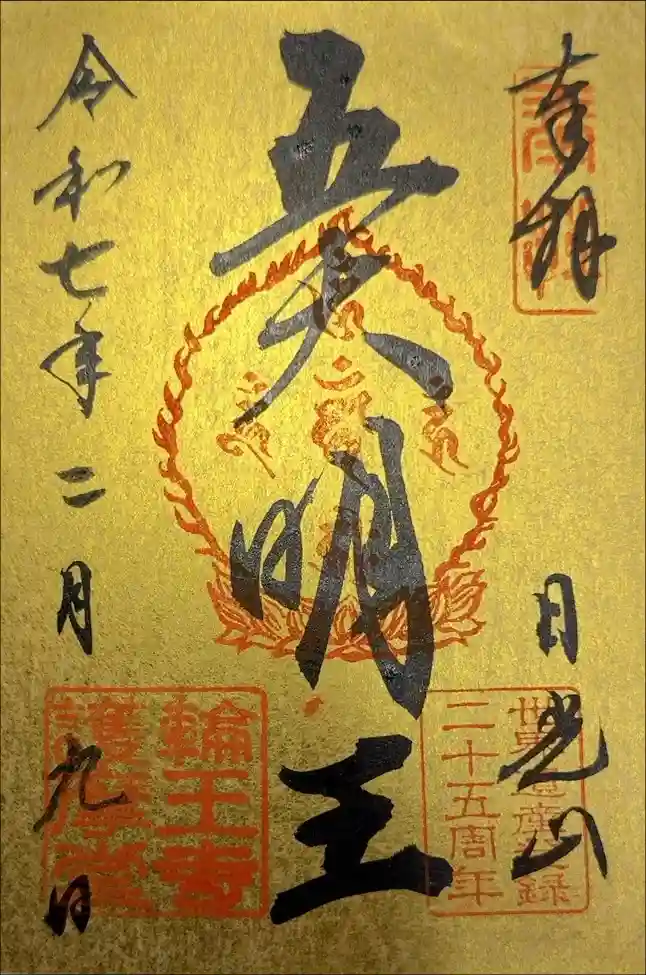 奉拝
日光山
世界遺産登録
二十五周年
五大明王
令和七年二月九日
輪王寺
護摩堂